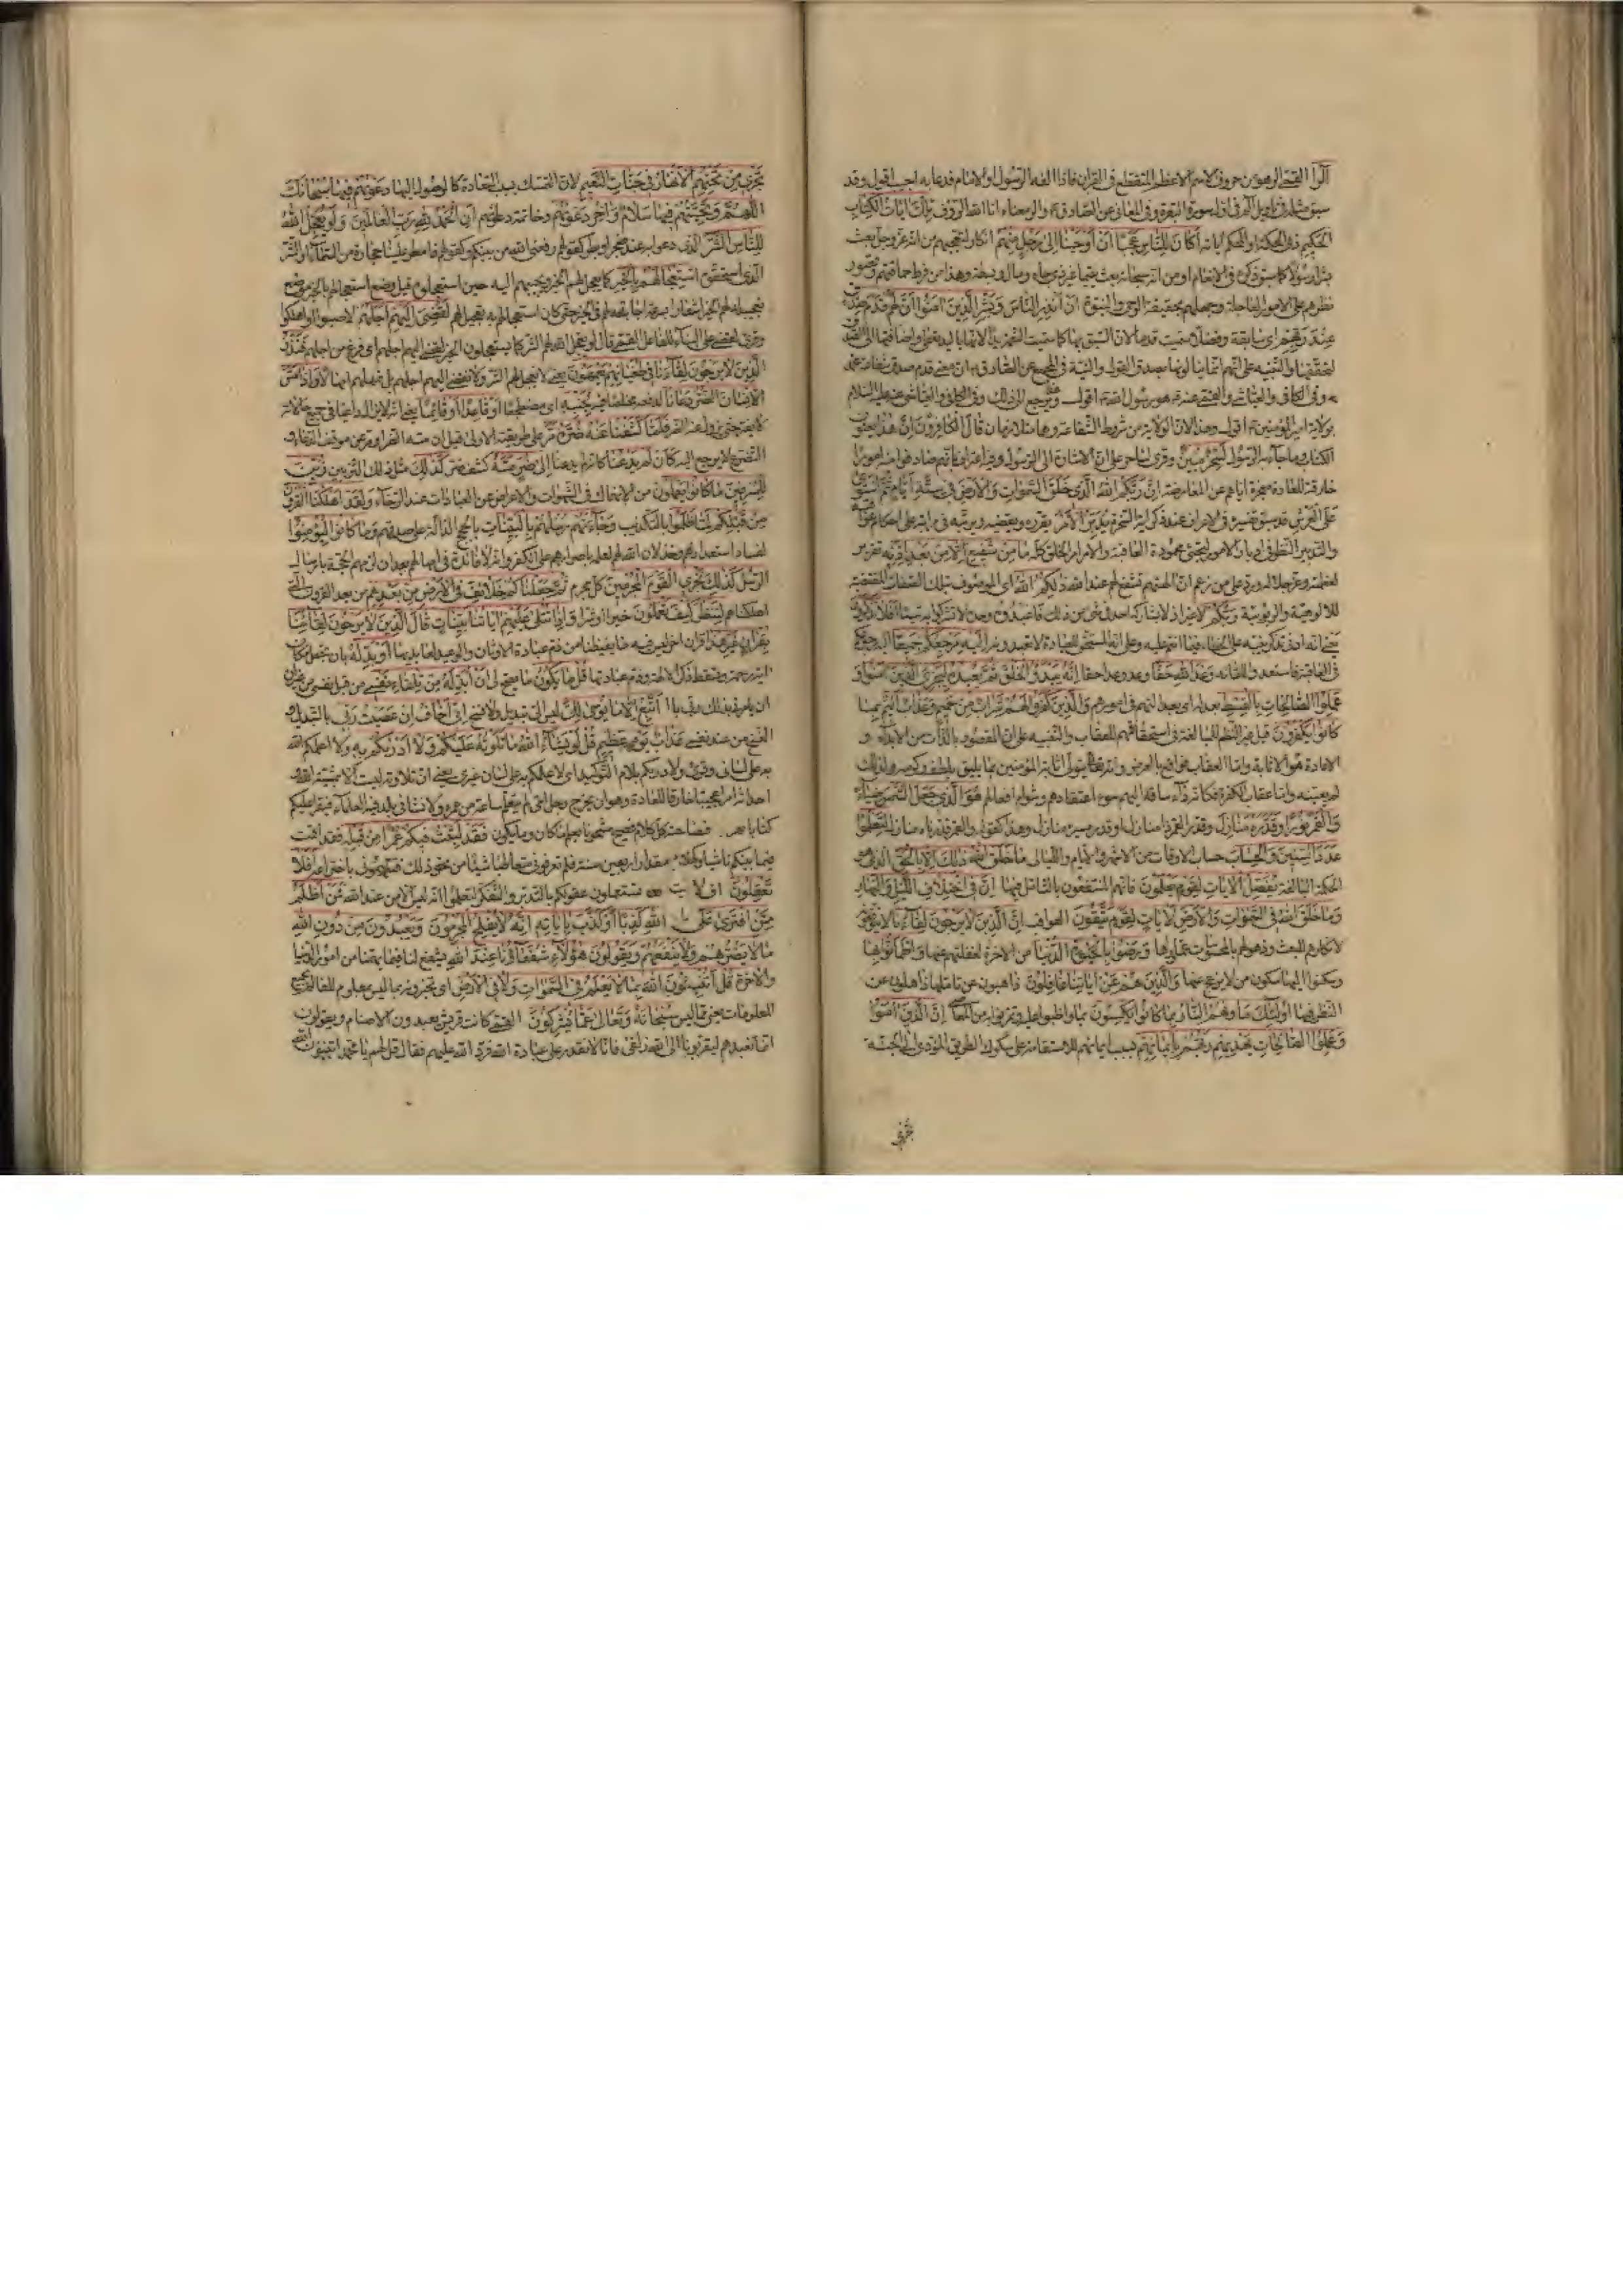 الر القمي الر هو من حروف الاسم الاعظم المنقطع في القران فاذا الفه الرسول او الامام فدعا به اجيب اقول وقد
سبق في تاويل الم في اول سورة البقرة وفي المعاني عن الصادق والر معناه انا الله الرؤف تلك ايات الكتاب
الحكيم ذي الحكمة والمحكم اياته اكان للناس عجبا ان اوحينا الى رجل منهم انكار لتعجبهم من ان الله عز وجل بعث
بشرا رسولا كما سبق ذكره في الانعام او من انه سبحانه بعث يتيما غير ذي جاه ومال وبسطة وهذا من فرط حماقتهم وقصور
نظرهم على الامور العاجلة وجهلهم بحقيقة الوحي والنبوة ان انذر الناس وبشر الذين امنوا ان لهم قدم صدق
عند ربهم اي سابقة وفضلا سميت قدما لان السبق بها كما سميت النعمة يدا لانها باليد تعطى واضافتها الى الصدق
لتحققها والتنبيه على انهم انما ينالونها بصدق القول والنية في المجمع عن الصادق ان معنى قدم صدق شفاعة محمد
وفي الكافي والعياشي والقمي عنه هو رسول الله اقول ومرجع الى ذلك وفي الكافي والعياشي عنه عليه السلام
بولاية امير المؤمنين اقول وهذا لان الولاية من شروط الشفاعة وهما متلازمان قال الكافرون ان هذا يعنون
الكتاب وما جاء به الرسول لسحر مبين وقرئ لساحر على ان الاشارة الى الرسول وفيه اعتراف بانهم صادفوا منه امورا
خارقة للعادة معجزة اياهم عن المعارضة ان ربكم الله الذي خلق السموات والارض في ستة ايام ثم استوى
على العرش قد سبق تفسيره في الاعراف عند ذكر اية السخرة يدبر الامر يقدره ويقضيه ويرتبه في مراتبه على احكام عواقبه
والتدبير النظر في ادبار الامور لتجيء محمودة العاقبة والامر امر الخلق كله ما من شفيع الا من بعد اذنه تقرير
لعظمته وعز جلاله ورد على من زعم ان الهتهم تشفع لهم عند الله ذلكم الله اي الموصوف بتلك الصفات المقتضية
للالوهية والربوبية ربكم لا غير اذ لا يشاركه احد في شيء من ذلك فاعبدوه وحده لا تشركوا به شيئا افلا تذكرون
يعني انه ادنى تذكر ينبه على الخطا فيما انتم عليه وعلى انه المستحق للعبادة لا ما تعبدونه اليه مرجعكم جميعا اليه رجوعكم
في العاقبة فاستعدوا للقائه وعد الله حقا وعد وعدا حقا انه يبدؤ الخلق ثم يعيده ليجزي الذين امنوا و
عملوا الصالحات بالقسط بعدله او بعدالتهم في امورهم والذين كفروا لهم شراب من حميم وعذاب اليم بما
كانوا يكفرون قيل غير النظم للمبالغة في استحقاقهم للعقاب والتنبيه على ان المقصود بالذات من الابداء و
الاعادة هو الاثابة واما العقاب فواقع بالعرض وانه تعالى يتولى اثابة المؤمنين بما يليق بلطفه وكرمه ولذلك
لم يعينه واما عقاب الكفرة فكانه داء ساقه اليهم سوء اعتقادهم وشوم افعالهم هو الذي جعل الشمس ضياء
والقمر نورا وقدره منازل وقدر القمر ذا منازل او قدر مسيره منازل وهذا كقوله والقمر قدرناه منازل لتعلموا
عدد السنين والحساب حساب الاوقات من الاشهر والايام والليالي ما خلق الله ذلك الا بالحق الذي هو
الحكمة البالغة يفصل الايات لقوم يعلمون فانهم المنتفعون بالتامل فيها ان في اختلاف الليل والنهار
وما خلق الله في السموات والارض لايات لقوم يتقون العواقب ان الذين لا يرجون لقاءنا لا يتوقعونه
لانكارهم للبعث وذهولهم بالمحسوسات عما وراءها ورضوا بالحيوة الدنيا من الاخرة لغفلتهم عنها واطمانوا بها
وسكنوا اليها سكون من لا يزعج عنها والذين هم عن اياتنا غافلون ذاهبون عن تاملها ذاهلون عن
النظر فيها اولئك ماواهم النار بما كانوا يكسبون بما واظبوا عليه وتمرنوا به من المعاصي ان الذين امنوا
وعملوا الصالحات يهديهم ربهم بايمانهم بسبب ايمانهم للاستقامة على سلوك الطريق المؤدي الى الجنة
تجري
تجري من تحتهم الانهار في جنات النعيم لان التمسك بسبب السعادة كالوصول اليها دعويهم فيها سبحانك
اللهم وتحيتهم فيها سلام واخر دعويهم وخاتمة دعائهم ان الحمد لله رب العالمين ولو يعجل الله
للناس الشر الذي دعوا به عند ضجر او بطر كقولهم رفعني الله من بينكم وكقولهم فامطر علينا حجارة من السماء والشر
الذي استحقوه استعجالهم بالخير كما يعجل لهم الخير ويجيبهم اليه حين استعجلوه قيل وضع استعجالهم بالخير موضع
تعجيله لهم الخير اشعارا بسرعة اجابته لهم في الخير حتى كان استعجالهم به تعجيل لهم لقضي اليهم اجلهم لاميتوا واهلكوا
وقرئ لقضى على البناء للفاعل القمي قال لو يعجل الله لهم الشر كما يستعجلون الخير لقضي اليهم اجلهم اي فرغ من اجلهم فنذر
الذين لا يرجون لقاءنا في طغيانهم يعمهون يعني لا نعجل لهم الشر ولا نقضي اليهم اجلهم بل نمهلهم امهالا واذا مس
الانسان الضر دعانا لدفعه مخلصا فيه لجنبه اي مضطجعا او قاعدا او قائما يعني انه لا يزال داعيا في جميع حالاته
لا يفتر حتى يزول عنه الضر فلما كشفنا عنه ضره مر على طريقته الاولى قبل ان مسه الضر او مر عن موقف الدعاء و
التضرع لا يرجع اليه كان لم يدعنا كانه لم يدعنا الى ضر مسه كشف ضر كذلك مثل ذلك التزيين زين
للمسرفين ما كانوا يعملون من الانهماك في الشهوات والاعراض عن العبادات عند الرخاء ولقد اهلكنا القرون
من قبلكم لما ظلموا بالتكذيب وجاءتهم رسلهم بالبينات بالحجج الدالة على صدقهم وما كانوا ليؤمنوا
لفساد استعدادهم وخذلان الله لهم لعلمه باصرارهم على الكفر وانه لا فائدة في امهالهم بعد ان لزمهم الحجة بارسال
الرسل كذلك نجزي القوم المجرمين كل مجرم ثم جعلناكم خلائف في الارض من بعدهم من بعد القرون التي
اهلكناهم لننظر كيف تعملون خيرا او شرا واذا تتلى عليهم اياتنا بينات قال الذين لا يرجون لقاءنا ائت
بقران غير هذا قران اخر ليس فيه ما يغيظنا من ذم عبادة الاوثان والوعيد لعابديها او بدله بان تجعل مكان
اية رحمة وتسقط ذكر الالهة وذم عبادتها قل ما يكون ما يصح لي ان ابدله من تلقاء نفسي من قبل نفسي من غير
ان يامرني بذلك ربي ان اتبع الا ما يوحى الي ليس الي تبديل ولا نسخ اني اخاف ان عصيت ربي بالتبديل و
النسخ من عند نفسي عذاب يوم عظيم قل لو يشاء الله ما تلوته عليكم ولا ادريكم به ولا اعلمكم الله
به على لساني وقرئ ولادريكم بلام التوكيد اي لاعلمكم به على لسان غيري يعني ان تلاوته ليست الا بمشية الله و
احداثه امرا عجيبا خارقا للعادة وهو ان يخرج رجل امي لم يتعلم ساعة من عمره ولا نشا في بلد فيه العلماء فيقرا عليكم
كتابا فصاحته كل كلام فصيح مشحونا بعلم ما كان وما يكون فقد لبثت فيكم عمرا من قبله فقد اقمت
فيما بينكم ناشيا وكهلا مقدار اربعين سنة فلم تعرفوني متعاطيا شيئا من نحو ذلك فتتهموني باختراعه افلا
تعقلون افلا تستعملون عقولكم بالتدبر والتفكر لتعلموا انه ليس الا من عند الله فمن اظلم
ممن افترى على الله كذبا او كذب باياته انه لا يفلح المجرمون ويعبدون من دون الله
ما لا يضرهم ولا ينفعهم ويقولون هؤلاء شفعاؤنا عند الله يشفع لنا فيما يهمنا من امور الدنيا
والاخرة قل اتنبئون الله بما لا يعلم في السموات ولا في الارض اي تخبرونه بما ليس بمعلوم للعالم بجميع
المعلومات يعني بما ليس سبحانه وتعالى عما يشركون القمي كانت قريش يعبدون الاصنام ويقولون
انما نعبدهم ليقربونا الى الله زلفى فانا لا نقدر على عبادة الله فرد الله عليهم فقال قل لهم يا محمد اتنبئون الله